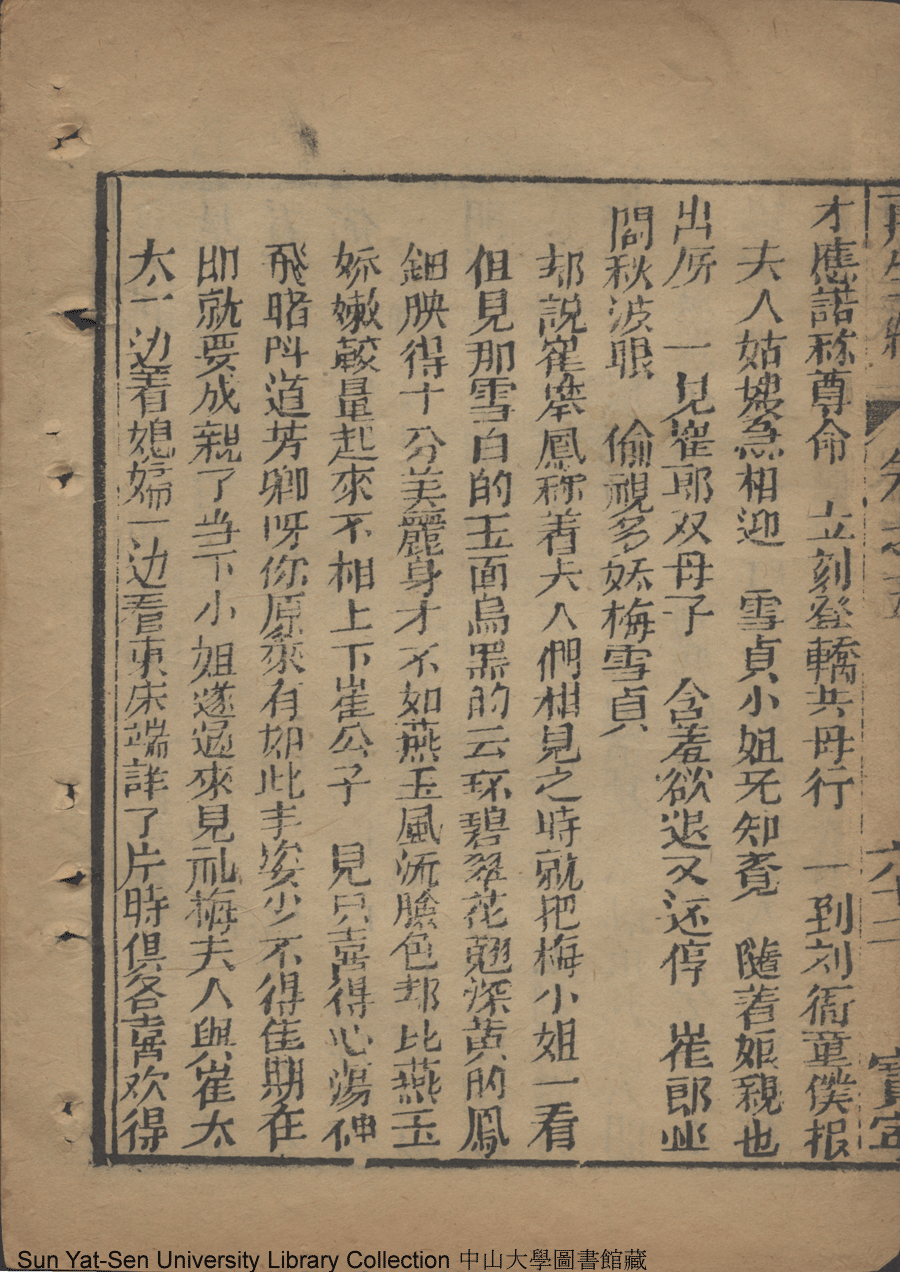 再生緣 卷之五 六十一 寶寧
才應諾称尊命 立刻登轎共母行 一到刘衙童僕报
夫人姑媳急相迎 雪貞小姐无知竟 隨着娘親也
出㕔 一見崔郎双母子 含羞欲退又还停 崔郎坐
間秋波眼 偷視多妖梅雪貞
却說崔攀鳳称着夫人們相見之時就把梅小姐一看
但見那雪白的玉面烏黑的云环碧翠花翹深黄的鳳
鈿映得十分美麗身才不如燕玉風流臉色却比燕玉
娇嫩較量起來不相上下崔公子 見只喜得心蕩神
飛暗呌道芳卿呀你原來有如此丰姿少不得佳期在
即就要成親了当下小姐遂過來見礼梅夫人與崔太
太一边看媳婦一边看東床端詳了片時俱各喜欢得
Sun Yat-Sen University Library Collection 中山大學圖書館藏